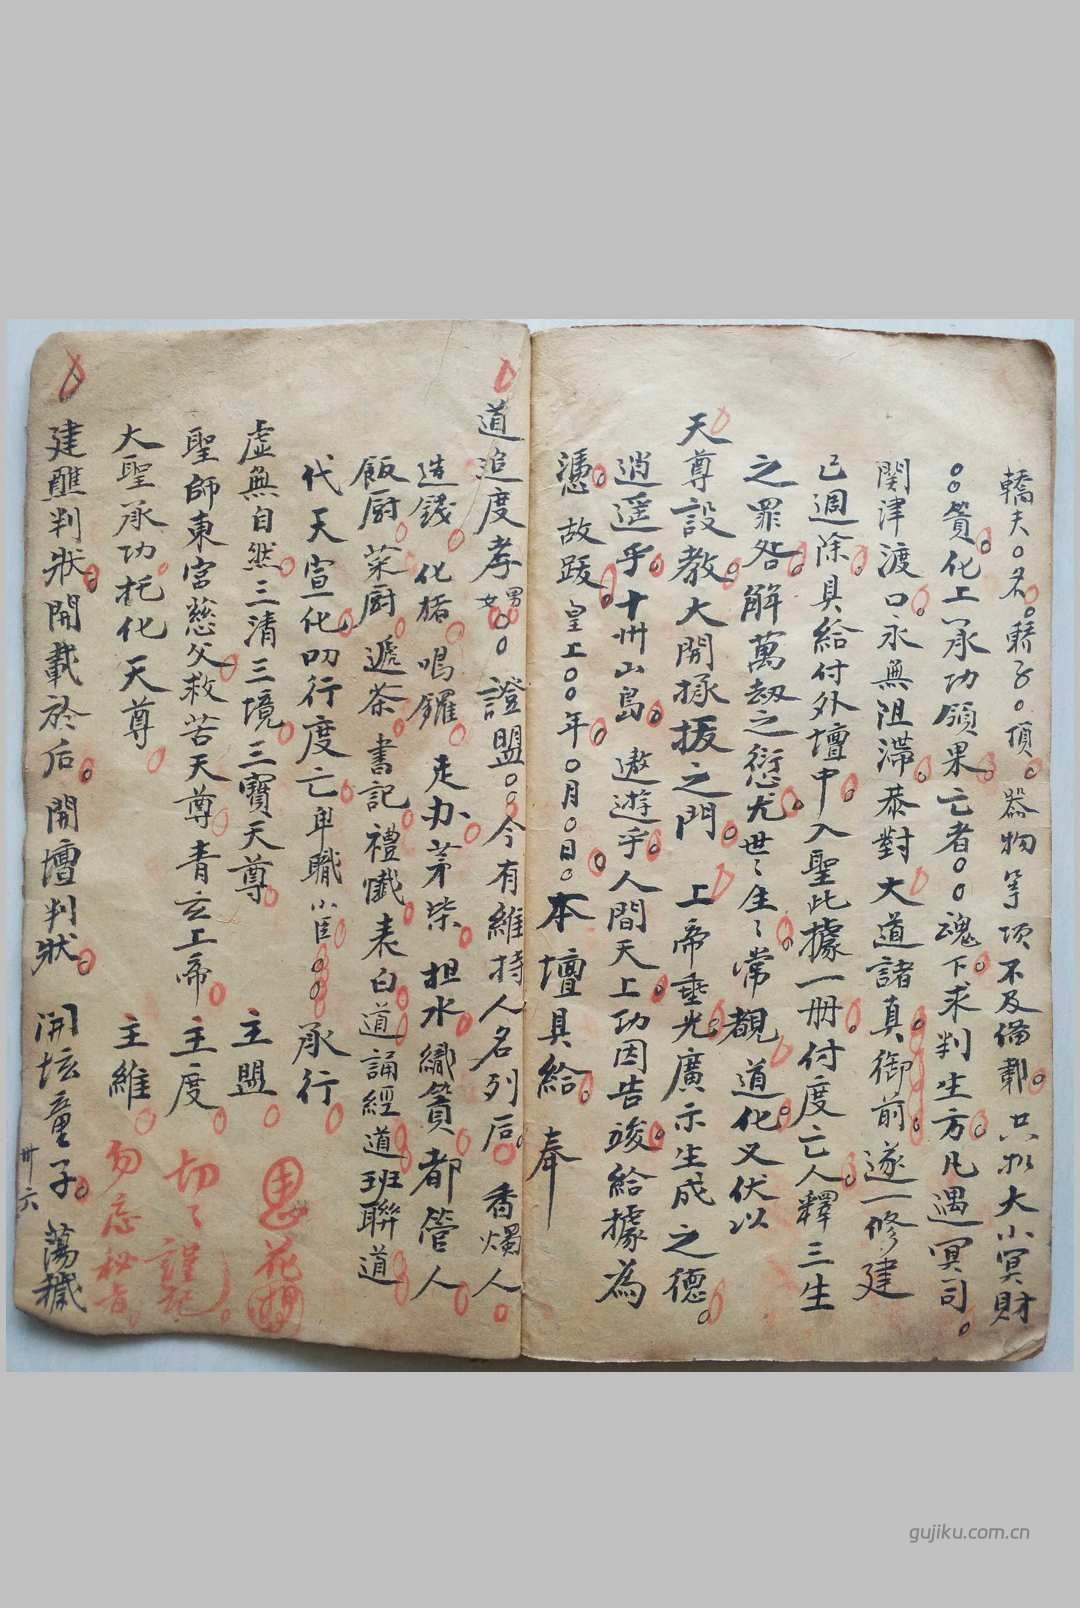 轎夫○名轎子○頂器物等項不及備載共扒大小冥財
○○簣化上承功領果亡者○○魂下求判生方凡遇冥司
関津渡口永無阻滯恭對大道諸真御前遂一修建
已週除具給付外壇中入聖此據一册付度亡人釋三生
之罪咎解萬劫之愆尤世々生々常覩道化又伏以
天尊設教大開拯拔之門上帝垂光廣示生成之德
逍遥乎十州山島遨遊乎人間天上功因告竣給據為
憑故跋皇上○○年○月○日○本壇具給奉
道追度孝男女○○證盟○○今有維持人名列后香燭人
造錢化楮鳴鑼走办茅柴担水繊簣都管人
飯厨菜厨遞茶書記禮懺表白道誦經道班聯道
代天宣化叨行度亡卑職小臣○○承行
虚無自然三清三境三寶天尊主盟
聖師東宮慈父救苦天尊青玄上帝主度
大聖承功托化天尊主維
思
切々謹記
勿忘秘旨
建醮判狀開載於后開壇判狀開坛童子蕩穢
卅六
gujiku.com.cn